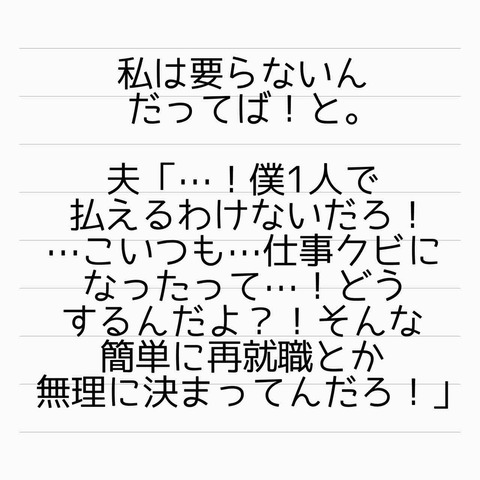 私は要らないん
だってば！と。
夫「…！僕1人で
払えるわけないだろ！
…こいつも…仕事クビに
なったって…！どう
するんだよ？！そんな
簡単に再就職とか
無理に決まってんだろ！」